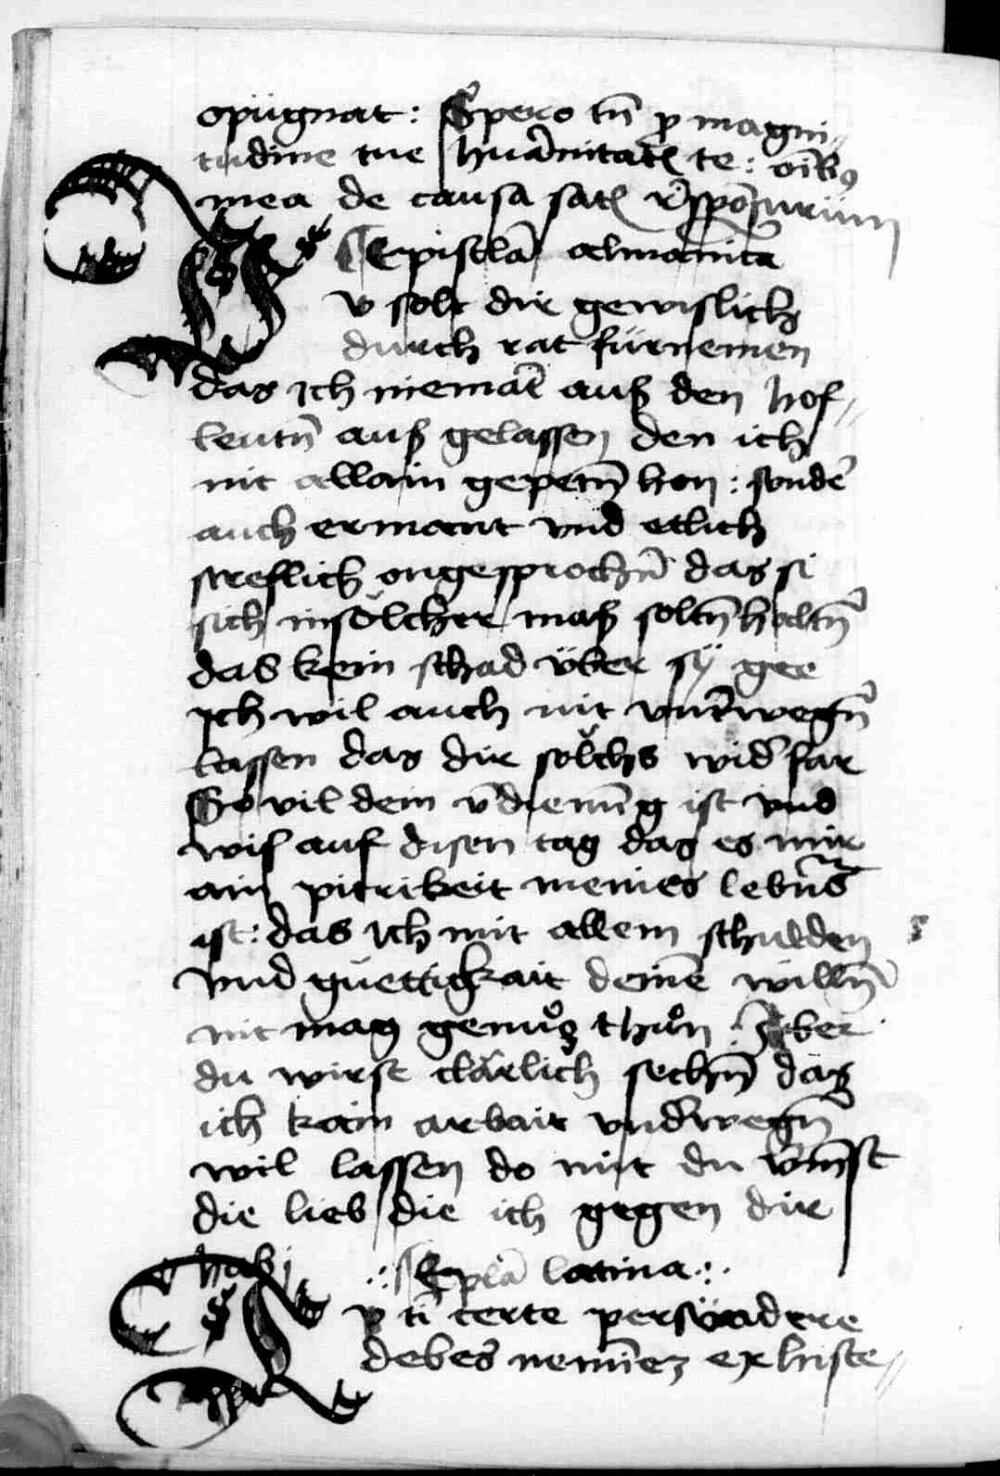 opügnat: Spero tn̄ p magni//
tudine tue huānitatꝭ te: oībꝯ
mea de causa satꝭ r̄sponsurum
Epistla almanica
Du solt dir gewislich
durch rat fürnemen
das Ich niemāt auß den hof//
leutn̄ auß gelassen den ich
nit allain gepetn̄ hon: sondē
auch ermant vnd etlich
streflich ongesprochn̄ das si
sich in sölcher maß soltn̄ haltn̄
das kein schad über sÿ gee
Ich wil auch nit vnt̄wegn̄
lassen das dir sölchs wid̄far
So vil dein v̄dienūg ist vnd
wiß auf disen tag das es mir
ain pitrikeit meines lebn̄s
ist: das Ich mit allem schulden
vnd guettigkait deinē willn̄
nit mag genug thun: Aber
du wirst clärlich sechn̄ das
ich kain arbait vnd̄wegn̄
wil lassen do mit du v̄nīst
die lieb die ich gegen dir
hab: Epl̄a latina
p ti certe persüadere
debes neminez ex histe//